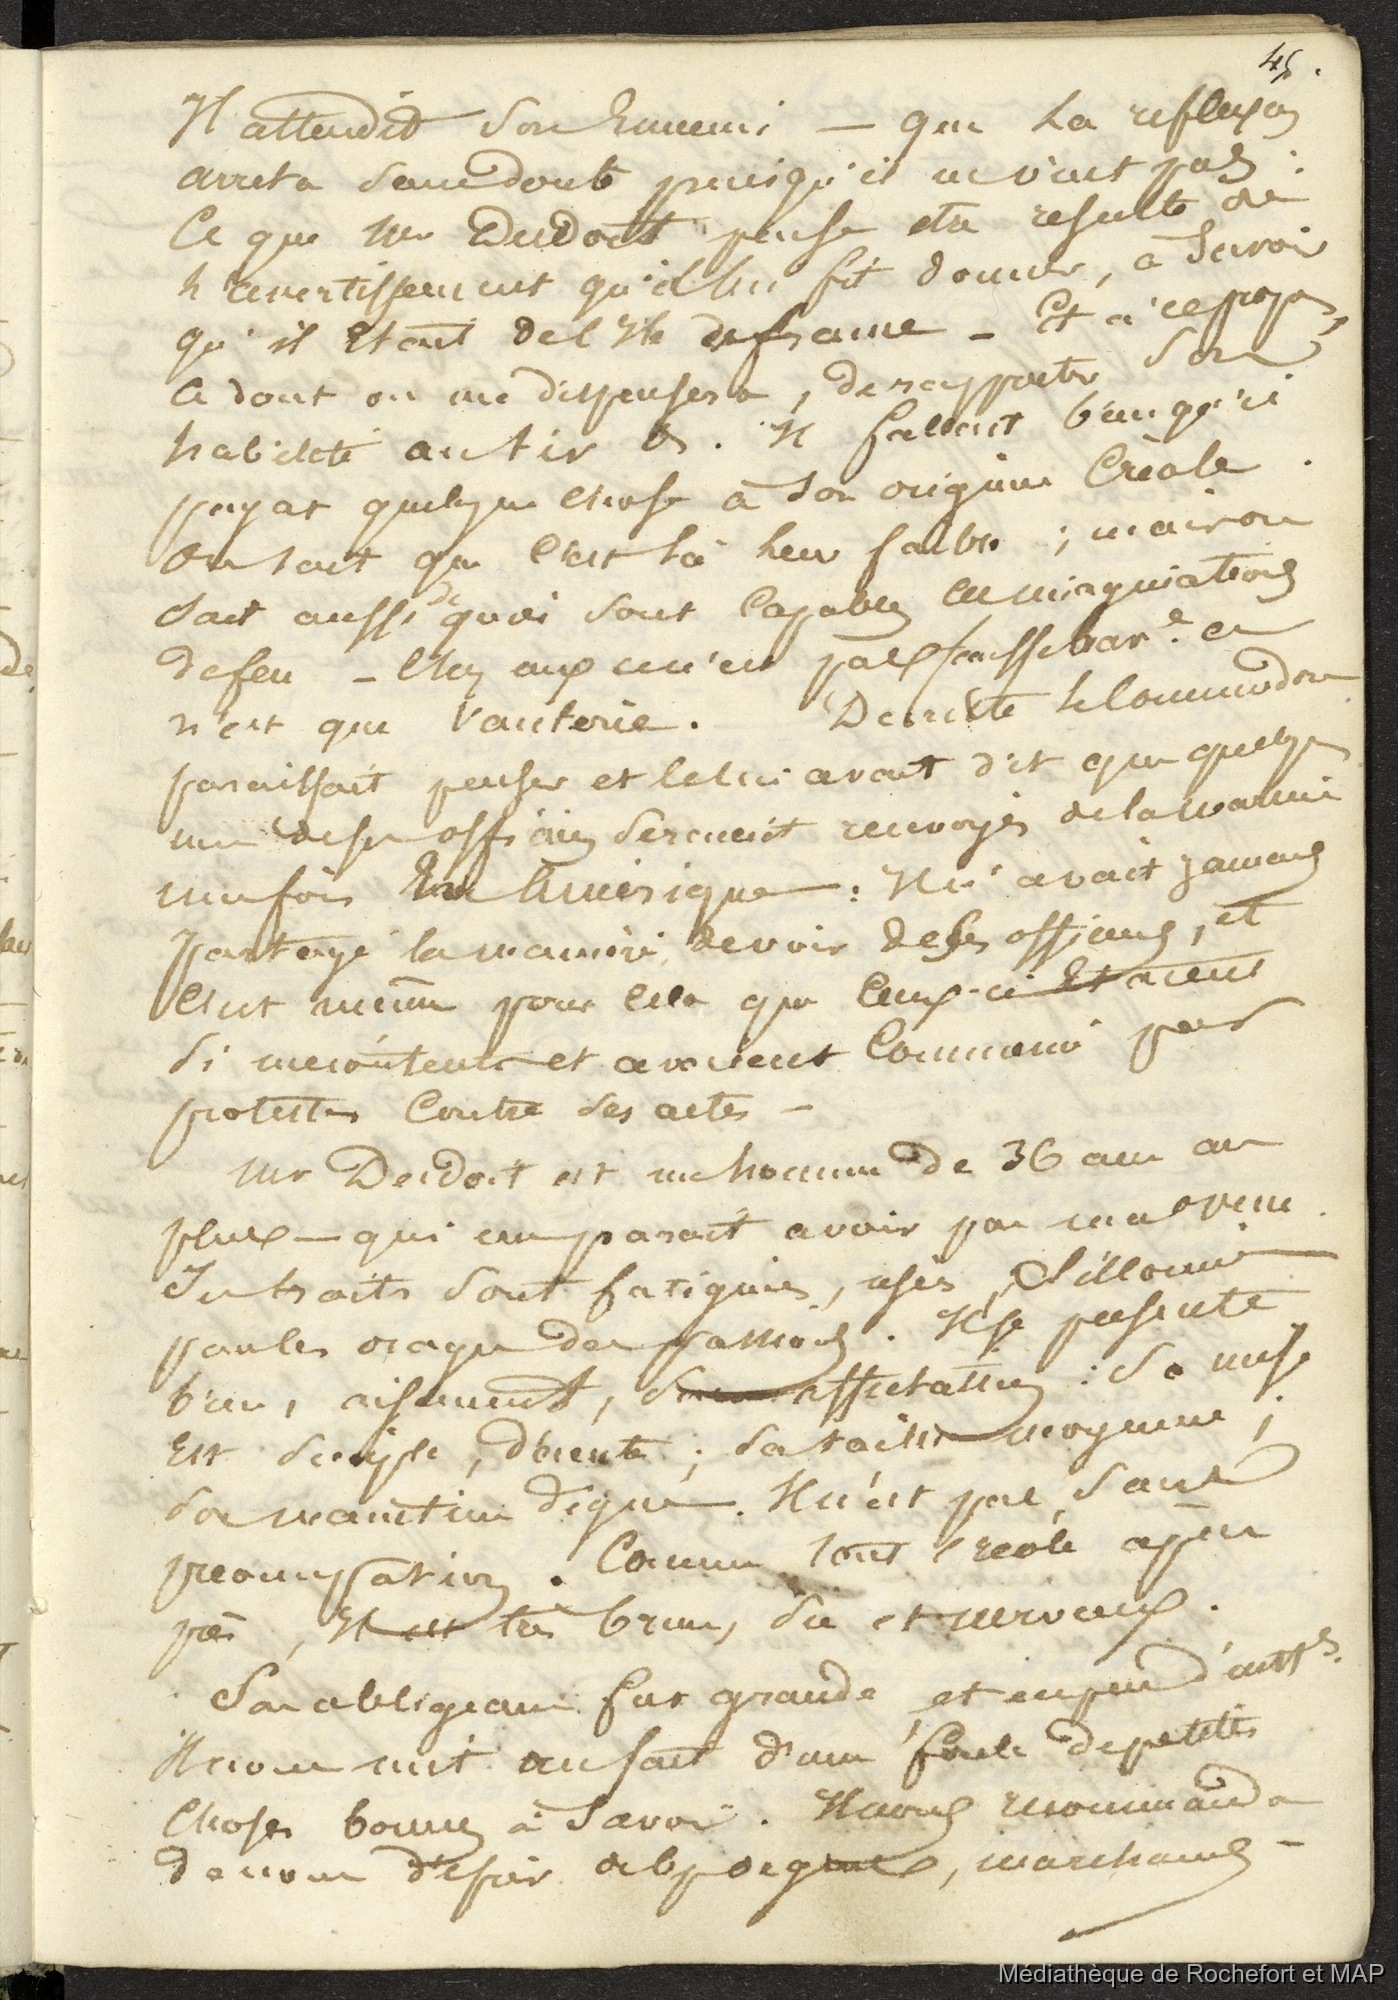 45.
Il attendit son ennemi — que la reflexion
arreta sans doute puisqu'il ne vint pas.
Ce que Mr Dudoit pense etre resulté de
l'avertissement qu'il lui fit donner, à savoir
qu'il etait de l'Ile de france — Et à ce propos,
a dont on me dispensera, de rapporter son
habileté au tir &. Il fallait bien qu'il
payat quelque chose à son origine Créole.
On sait que c'est là leur faible ; mais on
sait aussi de quoi sont capables ces imaginations
de feu — Chez eux ce n'est pas fausse bar.e ce
n'est que vanterie. De suite le Commodore
paraissait penser et le lui avait dit que quelques
uns de ses officiers seraient renvoyés de la marine
une fois En Amérique. Il n'avait jamais
partagé la maniere de voir de ses officiers, et
c'est même pour cela que ceux-ci Etaient
si mecontents et avaient Commencé par
protester Contre ses actes —
Mr Dudoit est un homme de 36 ans au
plus — qui me parait avoir pas mal vecu.
Ses traits sont fatigués, usés, sillonnés
par les orages des passions. Il se presente
bien, aisement, sans affectation : Sa mise
Est simple, décente ; sa taille moyenne ;
son maintien digne. Il n'est pas sans
preoccupation. Comme tout Créole à peu
près, Il est tres brun, sec et nerveux.
Son obligeance fut grande et en peu d'inst.s
Il nous mit au fait d'une foule de petites
choses bonnes à savoir. Il nous recommanda
de nous defier des marchands —
Médiathèque de Rochefort et MAP